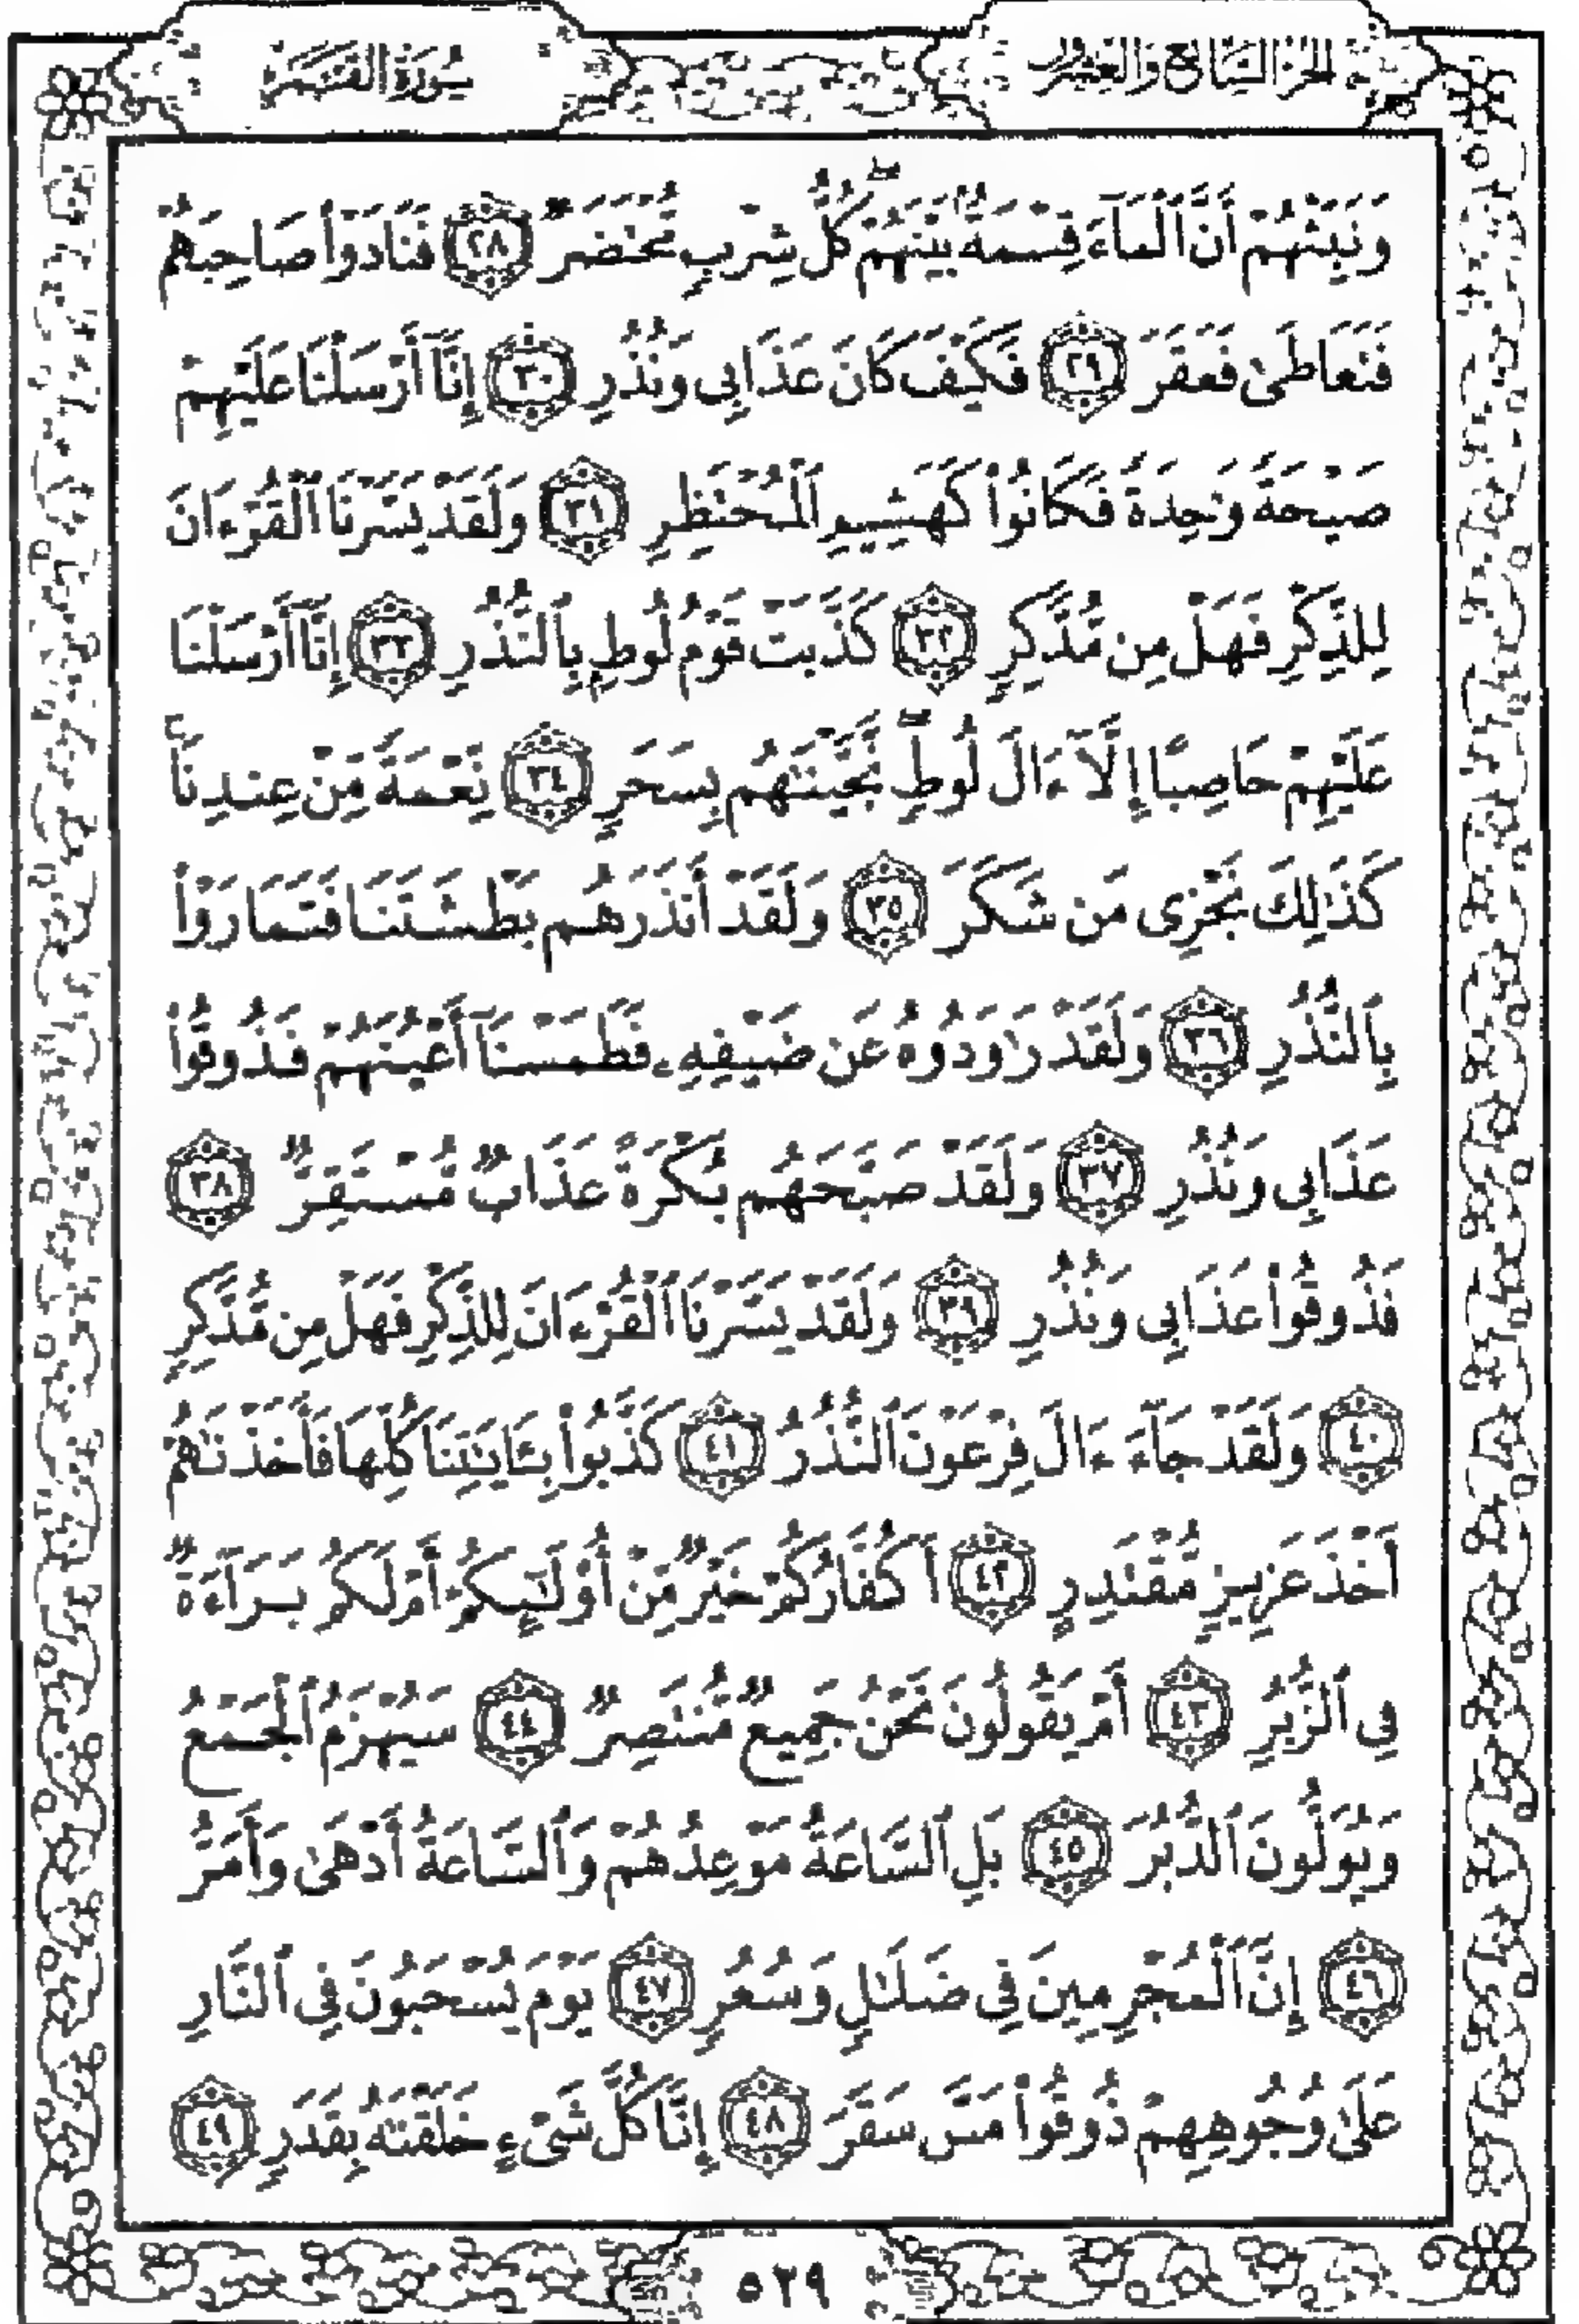 الجزء السابع والعشرون
سورة القمر
وَنَبِّئْهُمْ أَنَّ ٱلْمَآءَ قِسْمَةٌۢ بَيْنَهُمْ ۖ كُلُّ شِرْبٍ مُّحْتَضَرٌ ٢٨ فَنَادَوْا۟ صَاحِبَهُمْ
فَتَعَاطَىٰ فَعَقَرَ ٢٩ فَكَيْفَ كَانَ عَذَابِى وَنُذُرِ ٣٠ إِنَّآ أَرْسَلْنَا عَلَيْهِمْ
صَيْحَةً وَٰحِدَةً فَكَانُوا۟ كَهَشِيمِ ٱلْمُحْتَظِرِ ٣١ وَلَقَدْ يَسَّرْنَا ٱلْقُرْءَانَ
لِلذِّكْرِ فَهَلْ مِن مُّدَّكِرٍ ٣٢ كَذَّبَتْ قَوْمُ لُوطٍۭ بِٱلنُّذُرِ ٣٣ إِنَّآ أَرْسَلْنَا
عَلَيْهِمْ حَاصِبًا إِلَّآ ءَالَ لُوطٍ ۖ نَّجَّيْنَٰهُم بِسَحَرٍ ٣٤ نِّعْمَةً مِّنْ عِندِنَا ۚ
كَذَٰلِكَ نَجْزِى مَن شَكَرَ ٣٥ وَلَقَدْ أَنذَرَهُم بَطْشَتَنَا فَتَمَارَوْا۟
بِٱلنُّذُرِ ٣٦ وَلَقَدْ رَٰوَدُوهُ عَن ضَيْفِهِۦ فَطَمَسْنَآ أَعْيُنَهُمْ فَذُوقُوا۟
عَذَابِى وَنُذُرِ ٣٧ وَلَقَدْ صَبَّحَهُم بُكْرَةً عَذَابٌ مُّسْتَقِرٌّ ٣٨
فَذُوقُوا۟ عَذَابِى وَنُذُرِ ٣٩ وَلَقَدْ يَسَّرْنَا ٱلْقُرْءَانَ لِلذِّكْرِ فَهَلْ مِن مُّدَّكِرٍ
٤٠ وَلَقَدْ جَآءَ ءَالَ فِرْعَوْنَ ٱلنُّذُرُ ٤١ كَذَّبُوا۟ بِـَٔايَٰتِنَا كُلِّهَا فَأَخَذْنَٰهُمْ
أَخْذَ عَزِيزٍ مُّقْتَدِرٍ ٤٢ أَكُفَّارُكُمْ خَيْرٌ مِّنْ أُو۟لَٰٓئِكُمْ أَمْ لَكُم بَرَآءَةٌ
فِى ٱلزُّبُرِ ٤٣ أَمْ يَقُولُونَ نَحْنُ جَمِيعٌ مُّنتَصِرٌ ٤٤ سَيُهْزَمُ ٱلْجَمْعُ
وَيُوَلُّونَ ٱلدُّبُرَ ٤٥ بَلِ ٱلسَّاعَةُ مَوْعِدُهُمْ وَٱلسَّاعَةُ أَدْهَىٰ وَأَمَرُّ
٤٦ إِنَّ ٱلْمُجْرِمِينَ فِى ضَلَٰلٍ وَسُعُرٍ ٤٧ يَوْمَ يُسْحَبُونَ فِى ٱلنَّارِ
عَلَىٰ وُجُوهِهِمْ ذُوقُوا۟ مَسَّ سَقَرَ ٤٨ إِنَّا كُلَّ شَىْءٍ خَلَقْنَٰهُ بِقَدَرٍ ٤٩
٥٢٩